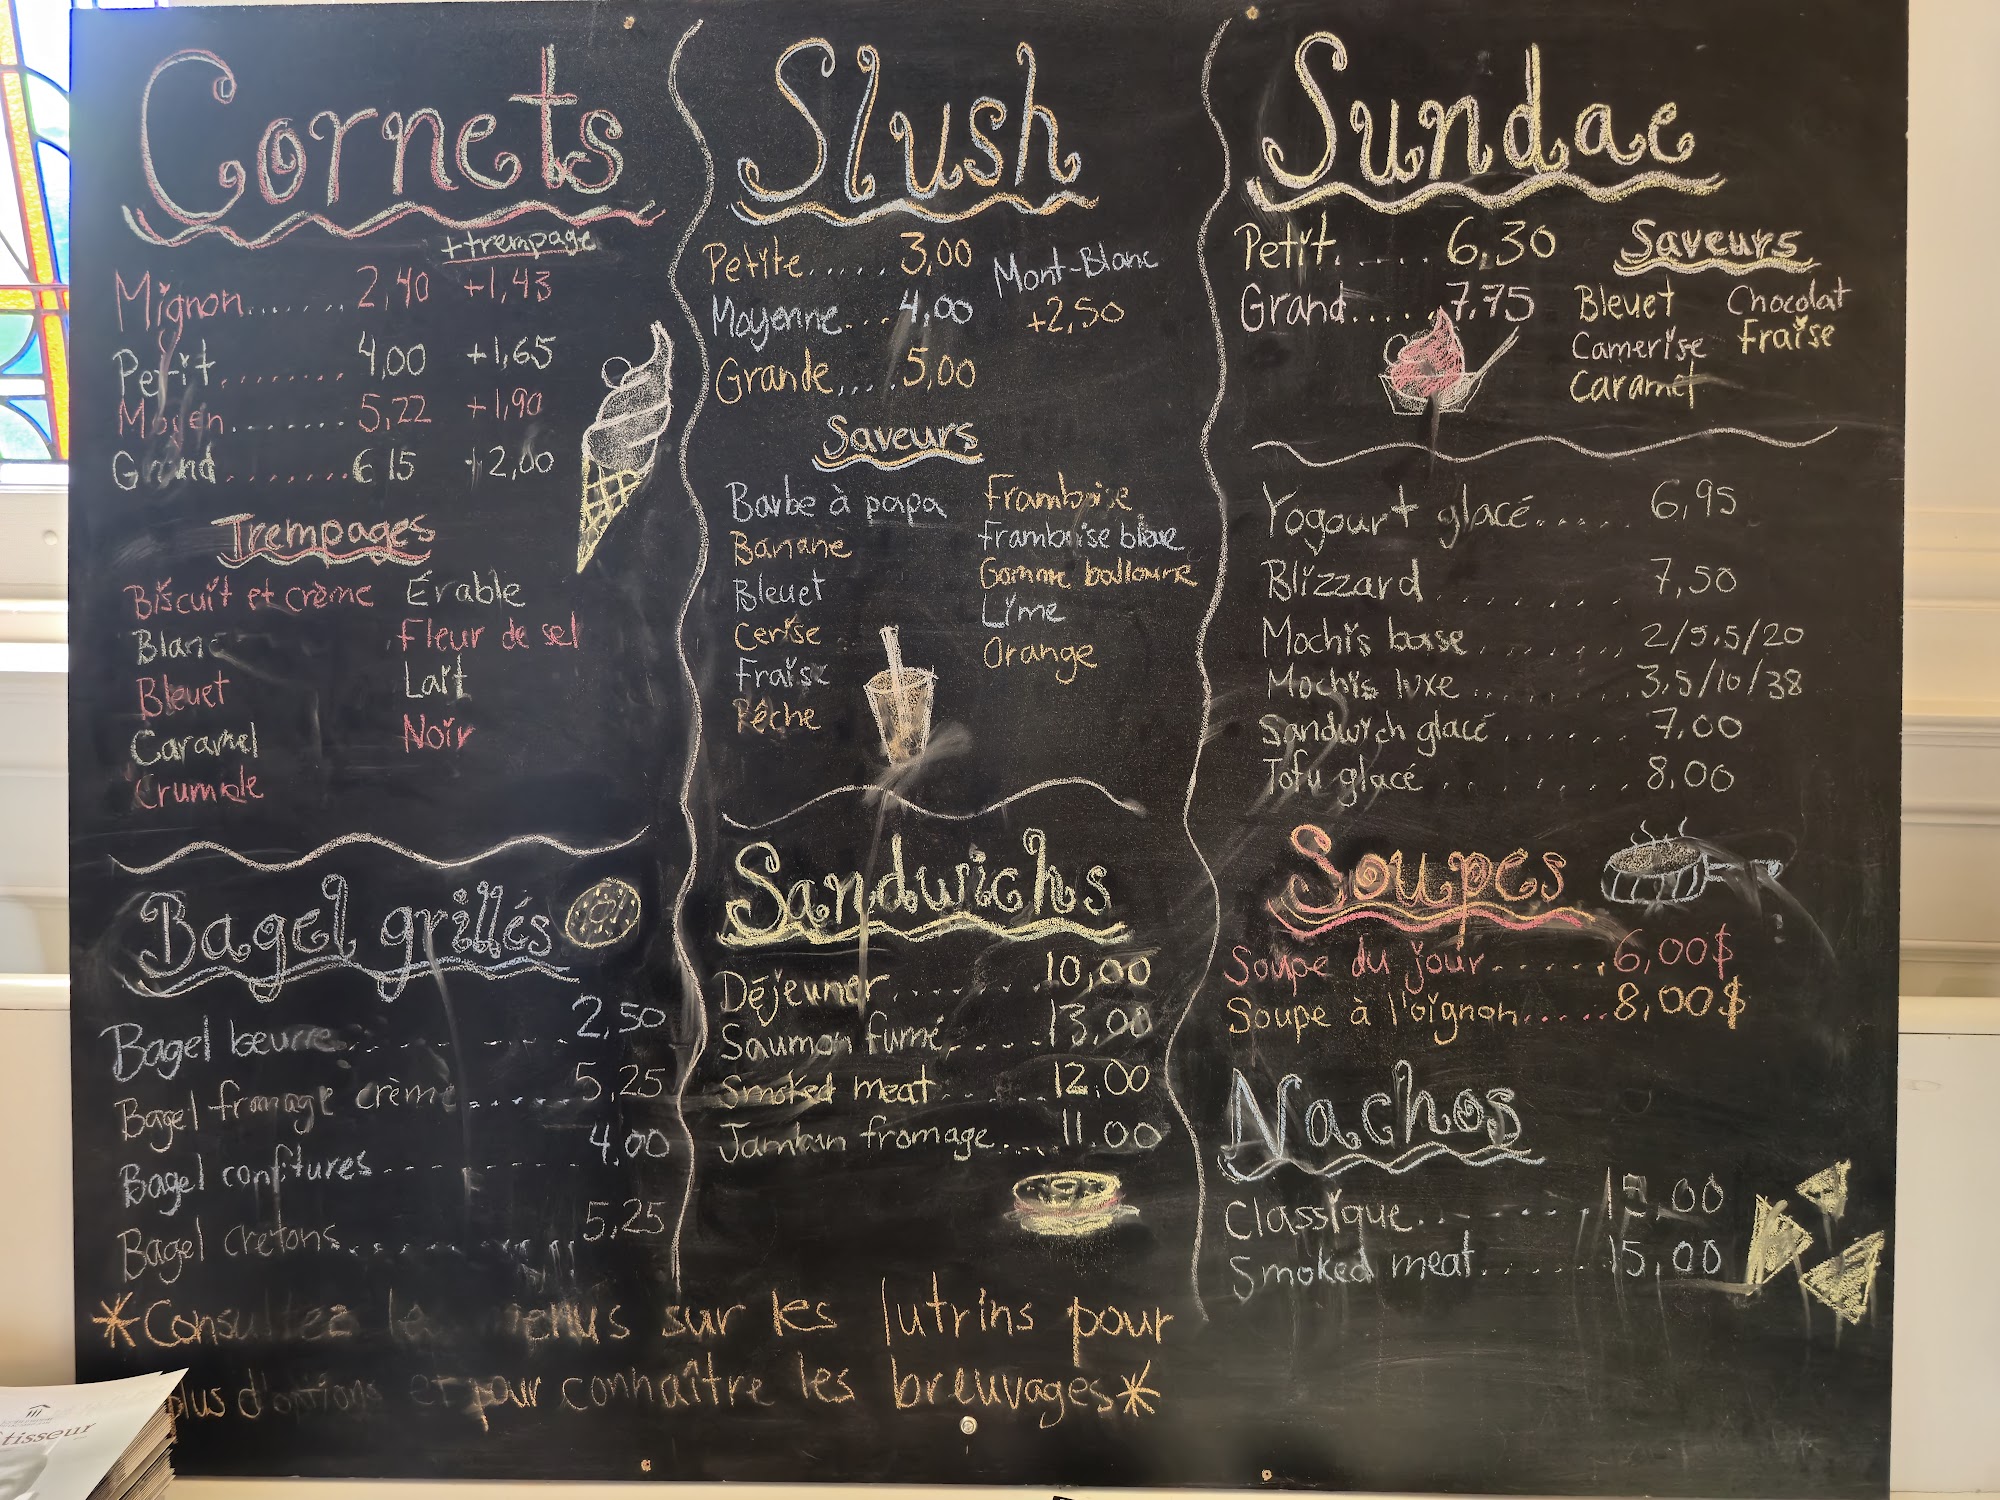 Cornets
+trempage
Mignon....... 2,40 +1,43
Petit........ 4,00 +1,65
Moyen....... 5,22 +1,90
Grand....... 6 15 +2,00
Trempages
Biscuit et crème
Blanc
Bleuet
Caramel
Crumble
Érable
Fleur de sel
Lait
Noir
Bagel grillés
Bagel beurre.......... 2,50
Bagel fromage crème...... 5,25
Bagel confitures........ 4,00
Bagel cretons......... 5,25
Slush
Petite..... 3,00
Moyenne... 4,00
Grande.... 5,00
Mont-Blanc
+2,50
Saveurs
Barbe à papa
Banane
Bleuet
Cerise
Fraise
Pêche
Framboise
Framboise bleue
Gomme balloune
Lime
Orange
Sandwichs
Déjeuner......... 10,00
Saumon fumé..... 13,00
Smoked meat...... 12,00
Jambon fromage.... 11,00
Sundae
Petit...... 6,30
Grand...... 7,75
Saveurs
Bleuet
Camerise
Caramel
Chocolat
Fraise
Yogourt glacé..... 6,95
Blizzard........ 7,50
Mochis base........ 2/5,5/20
Mochis luxe........ 3,5/10/38
Sandwich glacé....... 7,00
Tofu glacé........ 8,00
Soupes
Soupe du jour...... 6,00$
Soupe à l'oignon..... 8,00$
Nachos
Classique........ ,00
Smoked meat....... 15,00
*Consultez menus sur les lutrins pour
plus d'options et pour connaître les breuvages*
tisseur